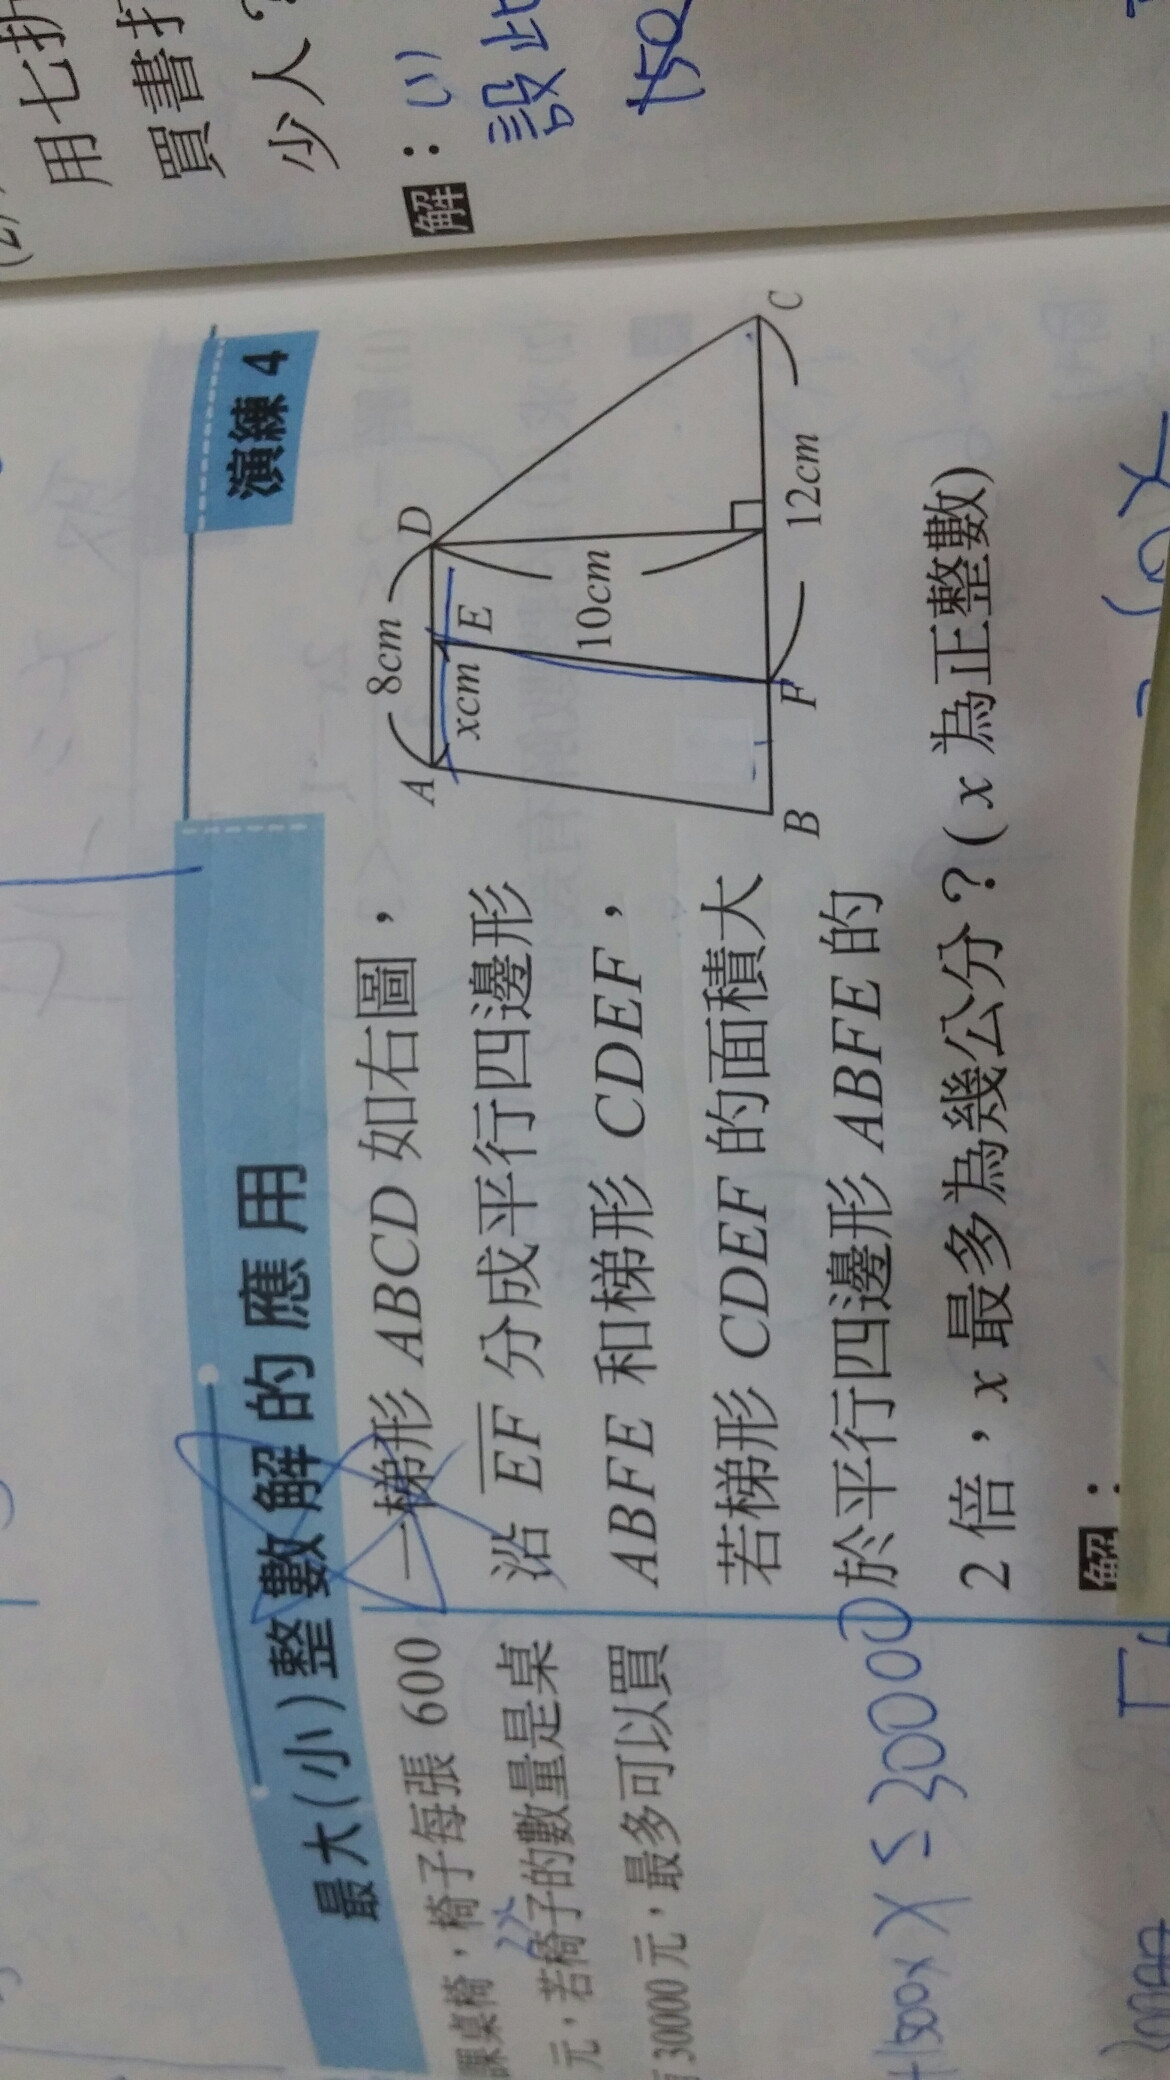 最大(小)整數解的應用
演練 4
一梯形 ABCD 如右圖，
沿 EF 分成平行四邊形
ABFE 和梯形 CDEF，
若梯形 CDEF 的面積大
於平行四邊形 ABFE 的
2 倍，x 最多為幾公分？(x 為正整數)
解：
A
8cm
D
xcm
E
10cm
B
F
12cm
C
課桌椅，椅子每張 600
元，若椅子的數量是桌
30000 元，最多可以買
X ≤ 30000
用七折
買書打
少人？
解：(1)
設此
150